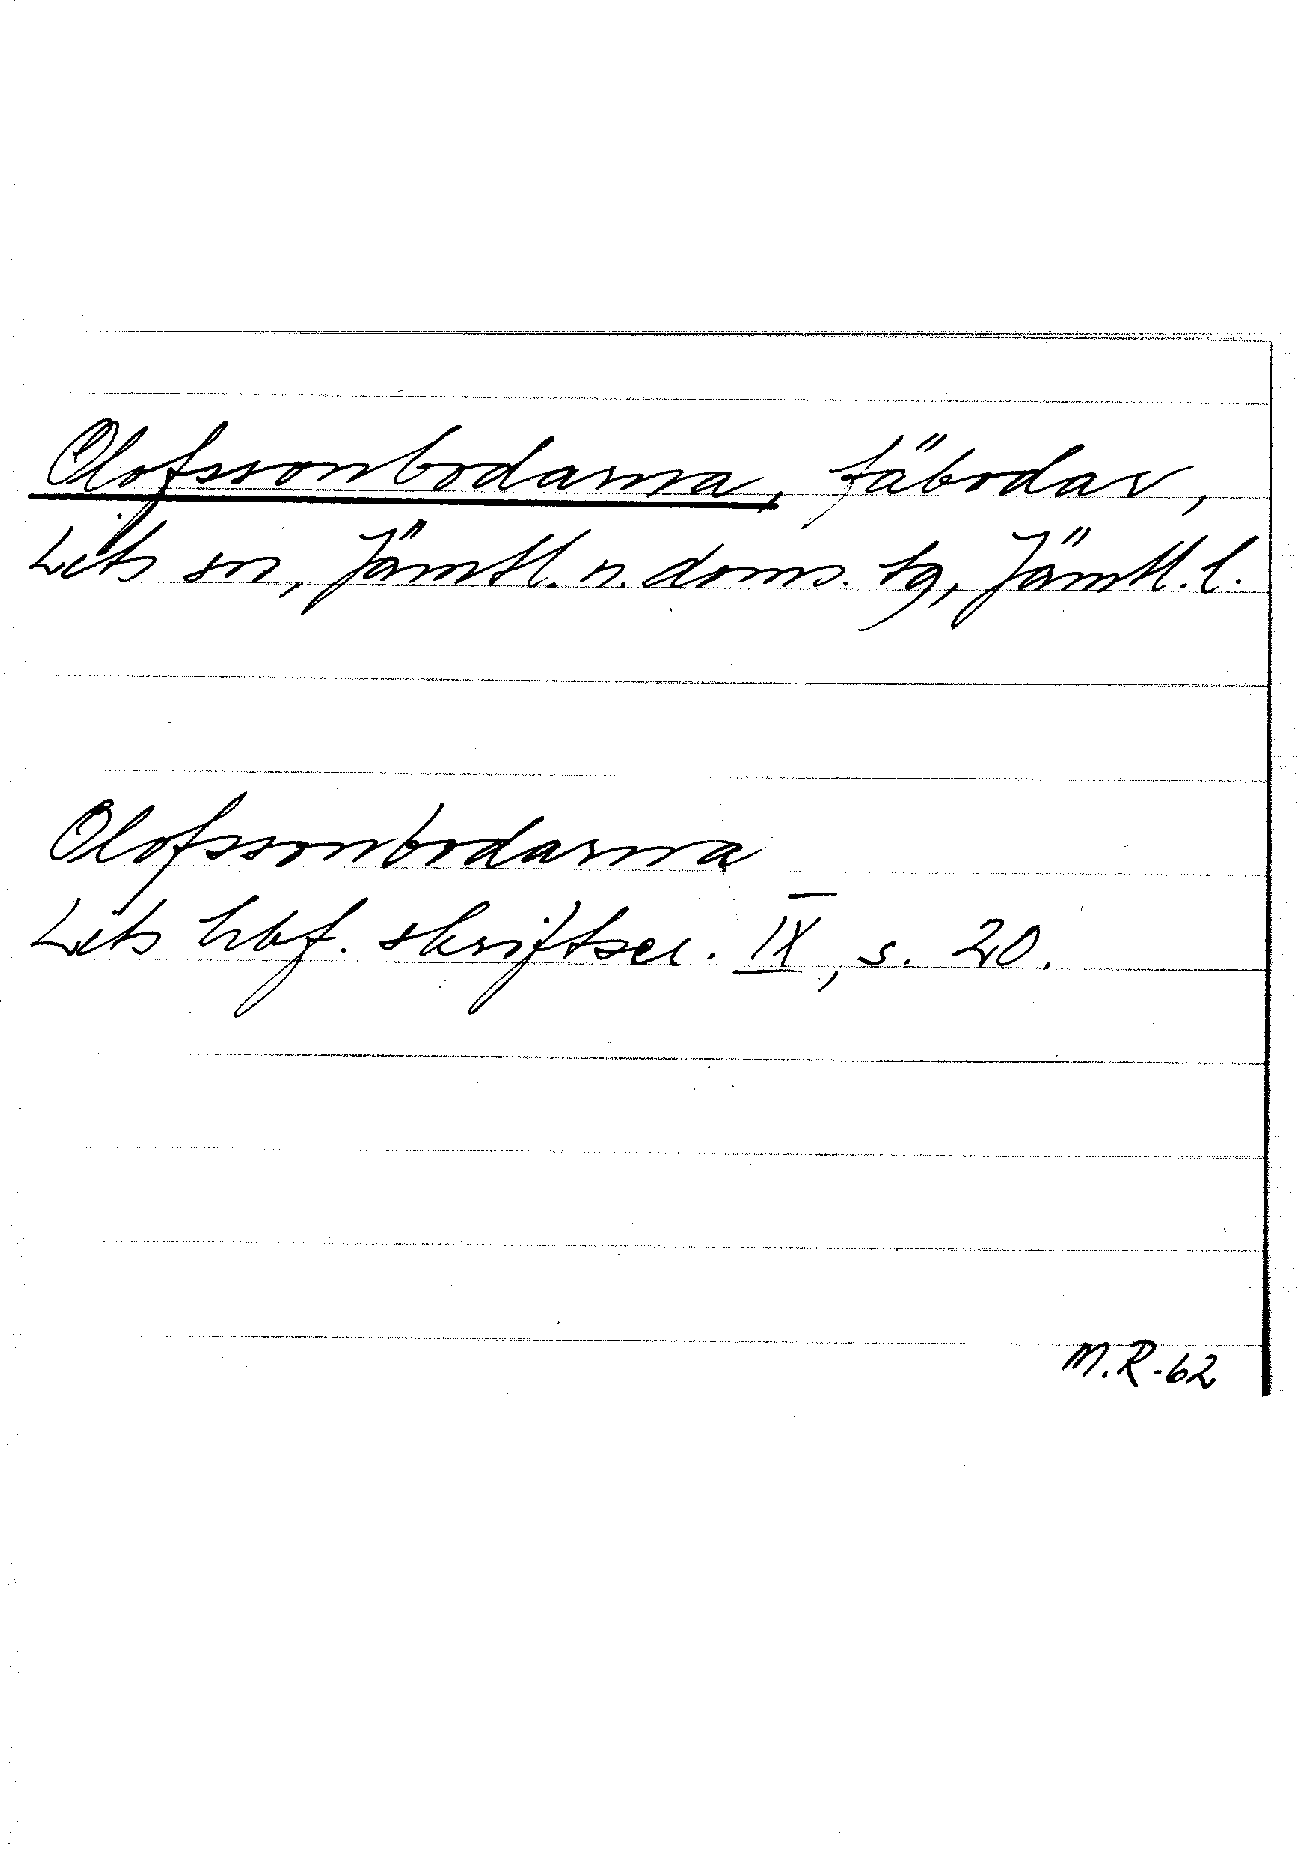 Olofssonbodarna, fäbodar,
Lits sn, Jämtl. n. doms. tg, Jämtl. l.
Olofssonbodarna
Lits hbf. skriftser. IX, s. 20.
M.R-62